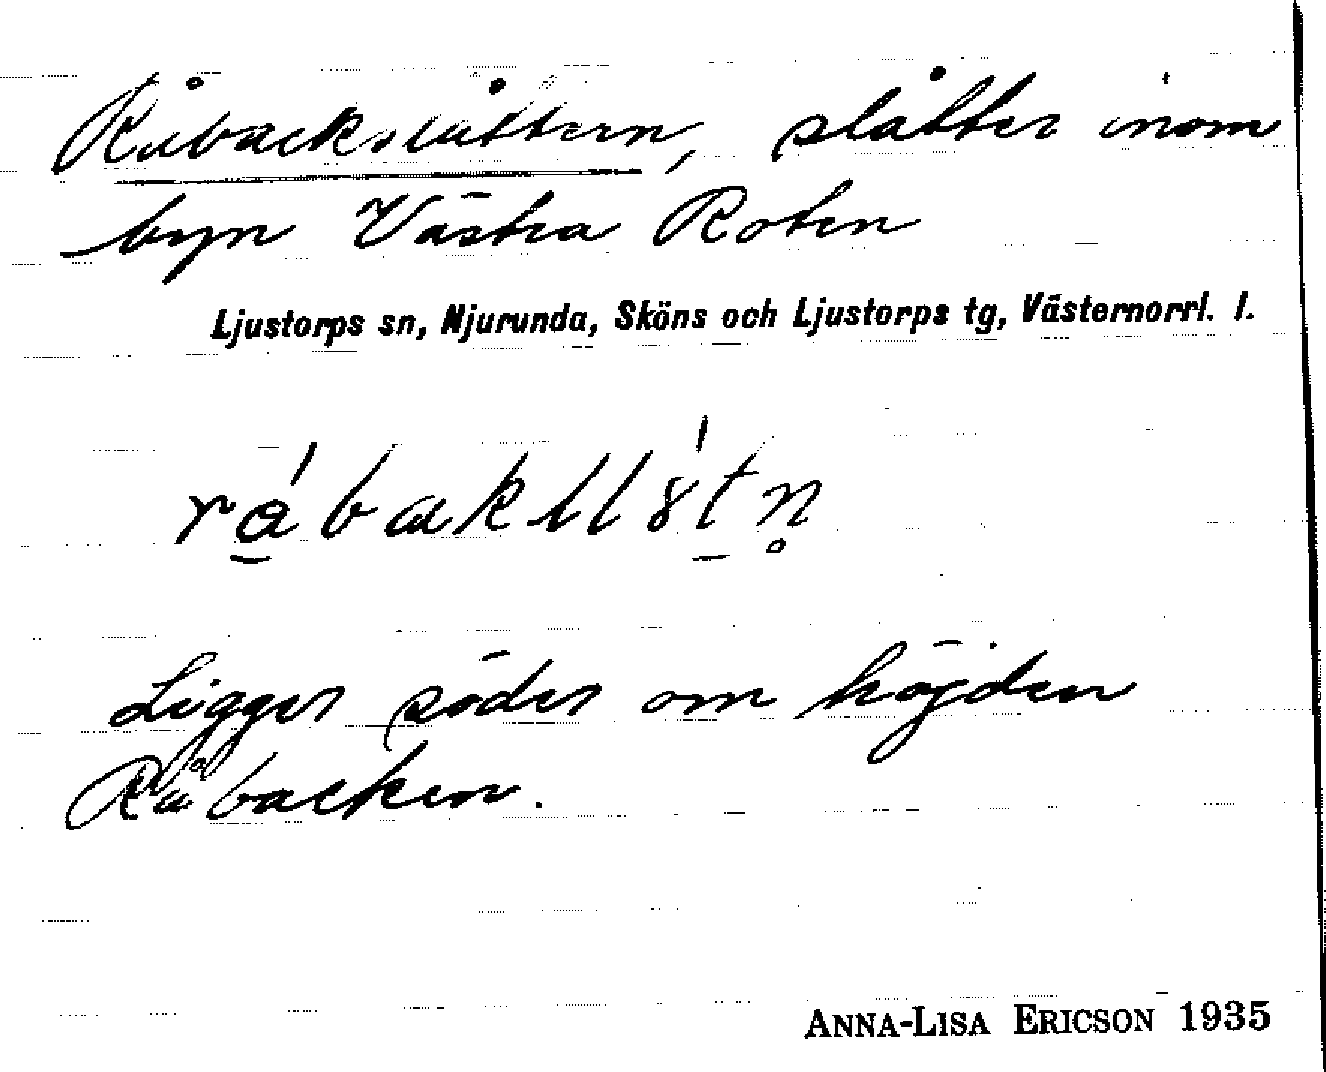 Råbackslåttern, slåtter inom
byn Västra Roten
Ljustorps sn, Njurunda, Sköns och Ljustorps tg, Västernorrl. l.
Ligger söder om höjden
Råbacken.
ANNA-LISA ERICSON 1935